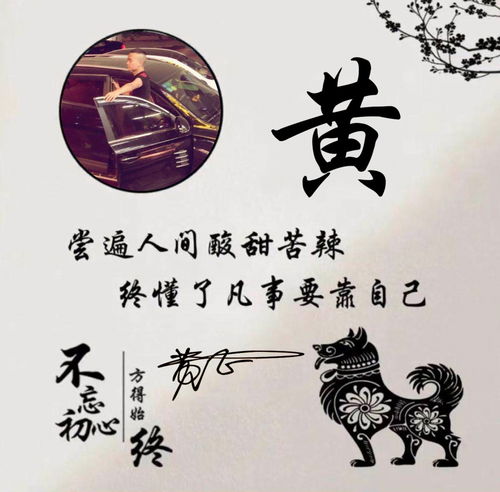 黄
尝遍人间酸甜苦辣
终懂了凡事要靠自己
黄
不忘初心
方得始终